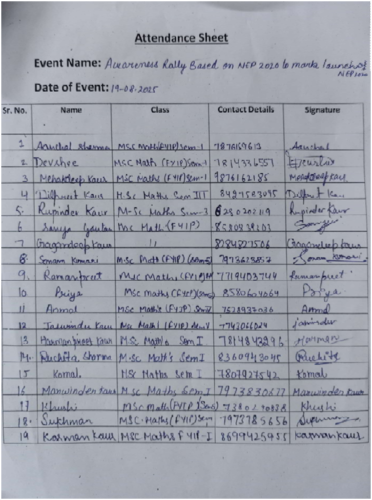 Attendance Sheet
Event Name: Awareness Rally Based on NEP 2020 to mark launch of
NEP 2020
Date of Event: 19-08-2025
Sr. No. Name Class Contact Details Signature
1 Aanchal Sharma MSC Maths(FYIP)Sem-1 Aanchal
2 Devshee MSC Maths (FYIP)Sem-1 7814336557
3 Mehakdeep Kaur MSC Maths (FYIP)Sem-1 9876162185 Mehakdeep Kaur
4 Dilpreet Kaur M.Sc Maths Sem III 8427583095 Dilpreet Kaur
5. Rupinder Kaur M.Sc Maths Sem-3 Rupinder Kaur
6 Msc Math (FYIP)
7 Gagandeep Kaur 11 8284827506 Gagandeep Kaur
8 Sonam Kumari M.Sc Math (FYIP) Sonam Kumari
9. Ramanpreet MSC Maths (FYIP) 7719403744 Ramanpreet
10 Priya MSC maths (FYIP) 8580604064 Priya
11 Anmol MSC Maths (FYIP) Sem I Anmol
12 Jasvinder Kaur Msc Math (FYIP) Sem V 7742066024 Jasvinder
13 Harmanpreet Kaur M.Sc Maths Sem I 7814843296 Harman
14 Ruchita Sharma M.Sc Maths Sem I 8360943045 Ruchita
15 Komal MSc Maths Sem I 7807927542 Komal
16 Manwinder Kaur M.Sc Maths Sem I 7973830677 Manwinder Kaur
17 Khushi MSC Maths (FYIP) Khushi
18. Sukhman MSC Maths (FYIP) Sem 7973785656
19 Karman Kaur MSC Maths FYIP-I 8699425455 Karman Kaur